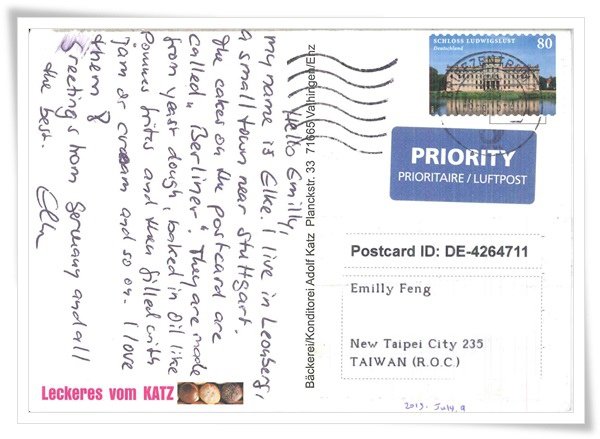 Hello Emilly,
my name is Elke. I live in Leonberg,
a small town near Stuttgart.
The cakes on the postcard are
called "Berliner". They are made
from yeast dough, baked in oil like
Pommes frites and then filled with
jam or cream and so on. I love
them 8
Greetings from Germany and all
the best. Elke
Bäckerei/Konditorei Adolf Katz Planckstr. 33 71665 Vaihingen/Enz
Leckeres vom KATZ
SCHLOSS LUDWIGSLUST
Deutschland
80
PRIORITY
PRIORITAIRE / LUFTPOST
Postcard ID: DE-4264711
Emilly Feng
New Taipei City 235
TAIWAN (R.O.C)
2013. July. 9